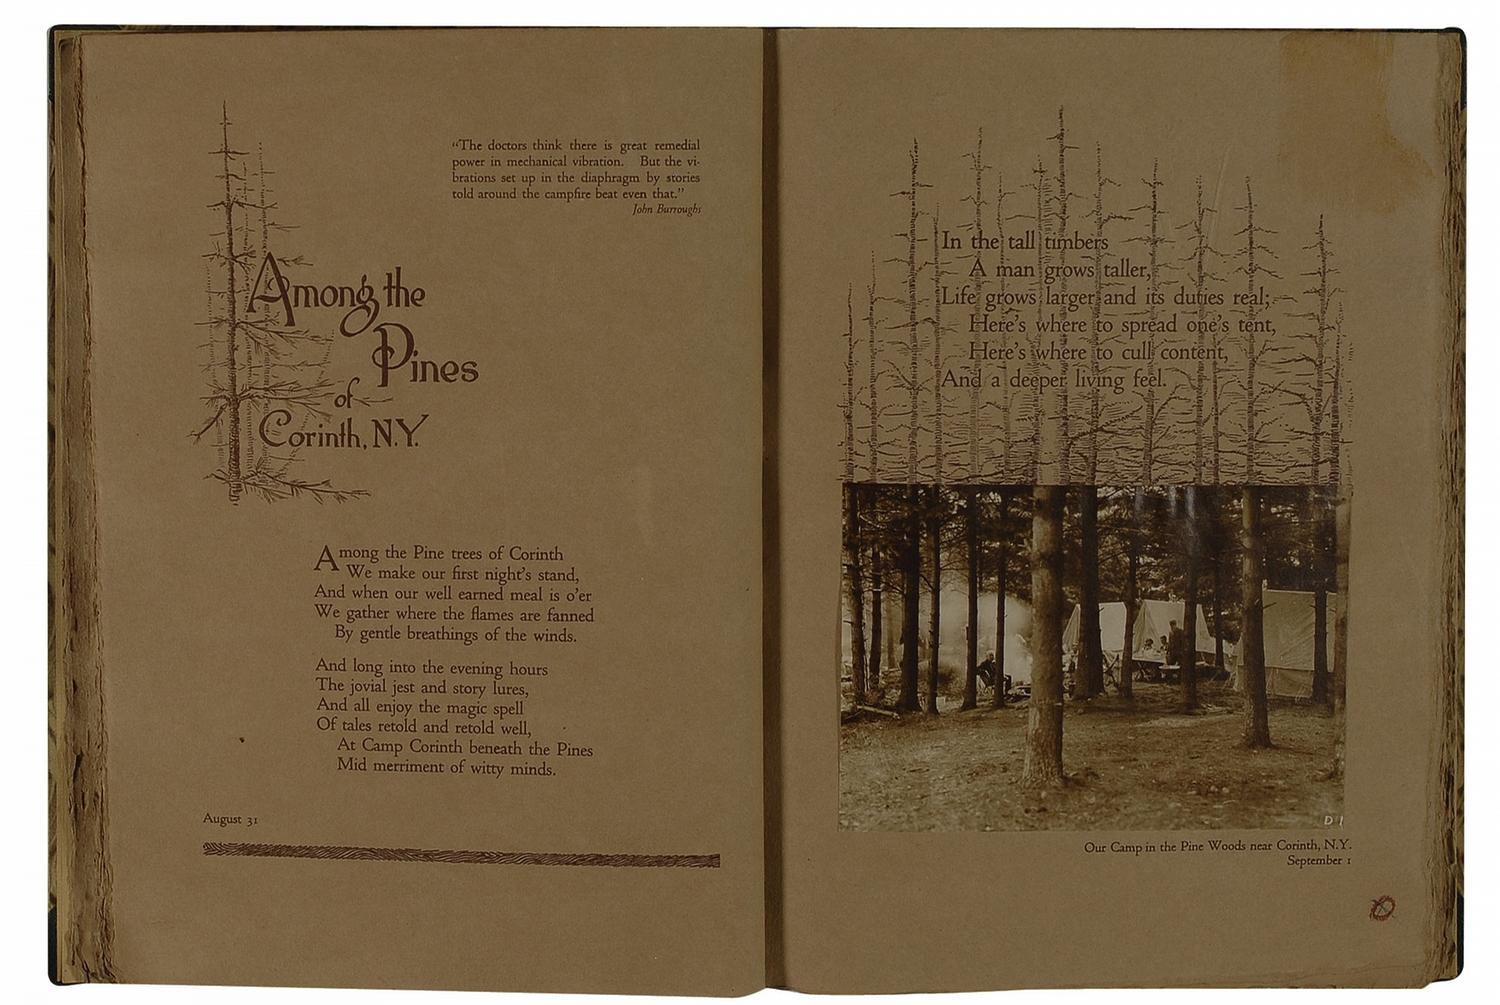 "The doctors think there is great remedial
power in mechanical vibration. But the vi-
brations set up in the diaphragm by stories
told around the campfire beat even that."
John Burroughs
Among the
Pines
of
Corinth, N.Y.
Among the Pine trees of Corinth
We make our first night's stand,
And when our well earned meal is o'er
We gather where the flames are fanned
By gentle breathings of the winds.
And long into the evening hours
The jovial jest and story lures,
And all enjoy the magic spell
Of tales retold and retold well,
At Camp Corinth beneath the Pines
Mid merriment of witty minds.
August 31
In the tall timbers
A man grows taller,
Life grows larger and its duties real;
Here's where to spread one's tent,
Here's where to cull content,
And a deeper living feel.
D 1
Our Camp in the Pine Woods near Corinth, N.Y.
September 1